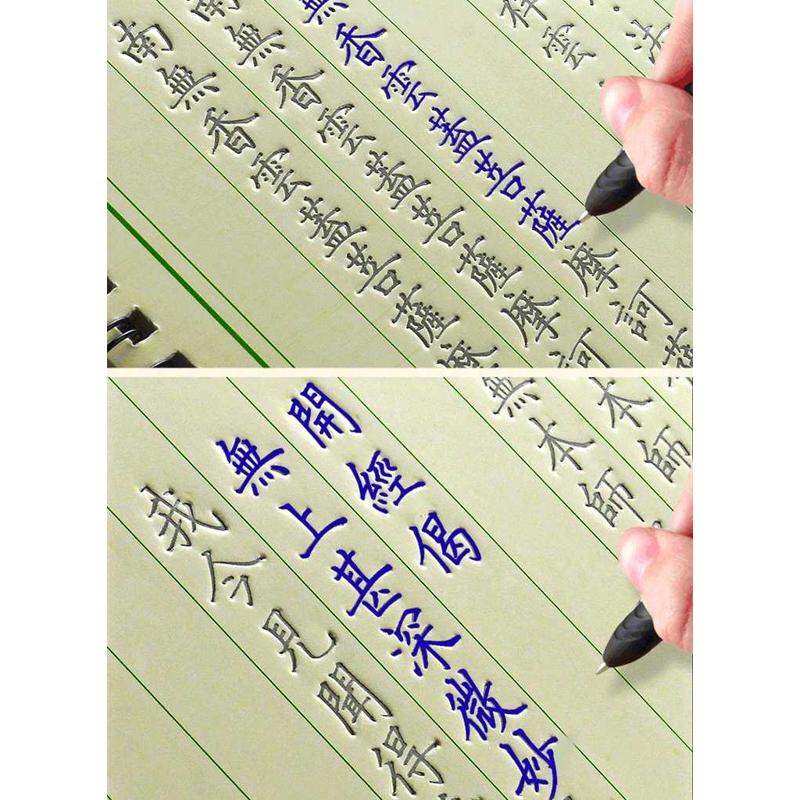 法
祥雲
無香雲蓋菩薩摩訶薩
南無香雲蓋菩薩摩訶
南無香雲蓋菩薩摩
本師
無本師
開經偈
無上甚深微妙
我今見聞得